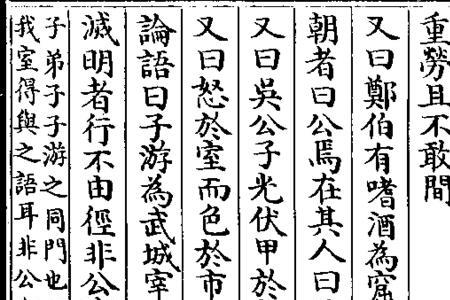 重勞且不敢間
又曰鄭伯有嗜酒為窟
朝者曰公焉在其人曰
又曰吳公子光伏甲於
又曰怒於室而色於市
論語曰子游為武城宰
滅明者行不由徑非公
子弟子子游之同門也
我室得與之語耳非公